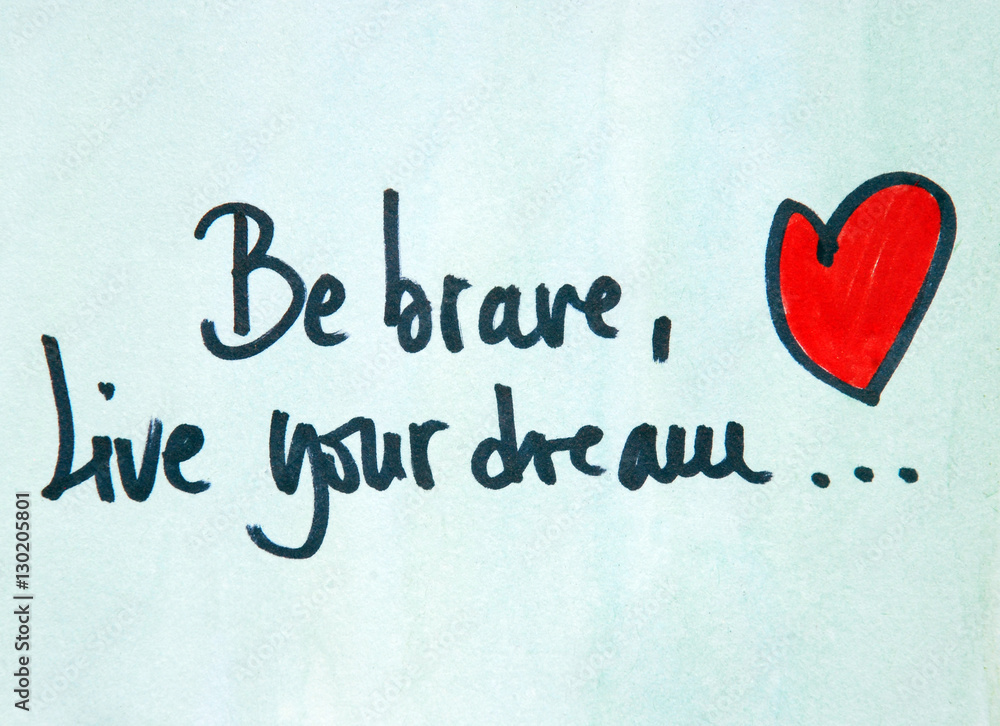 Be brave,
Live your dream...
Adobe Stock | #130205801